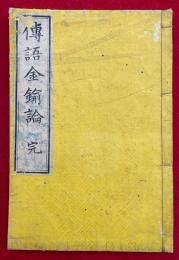 傳語金鍮論 完